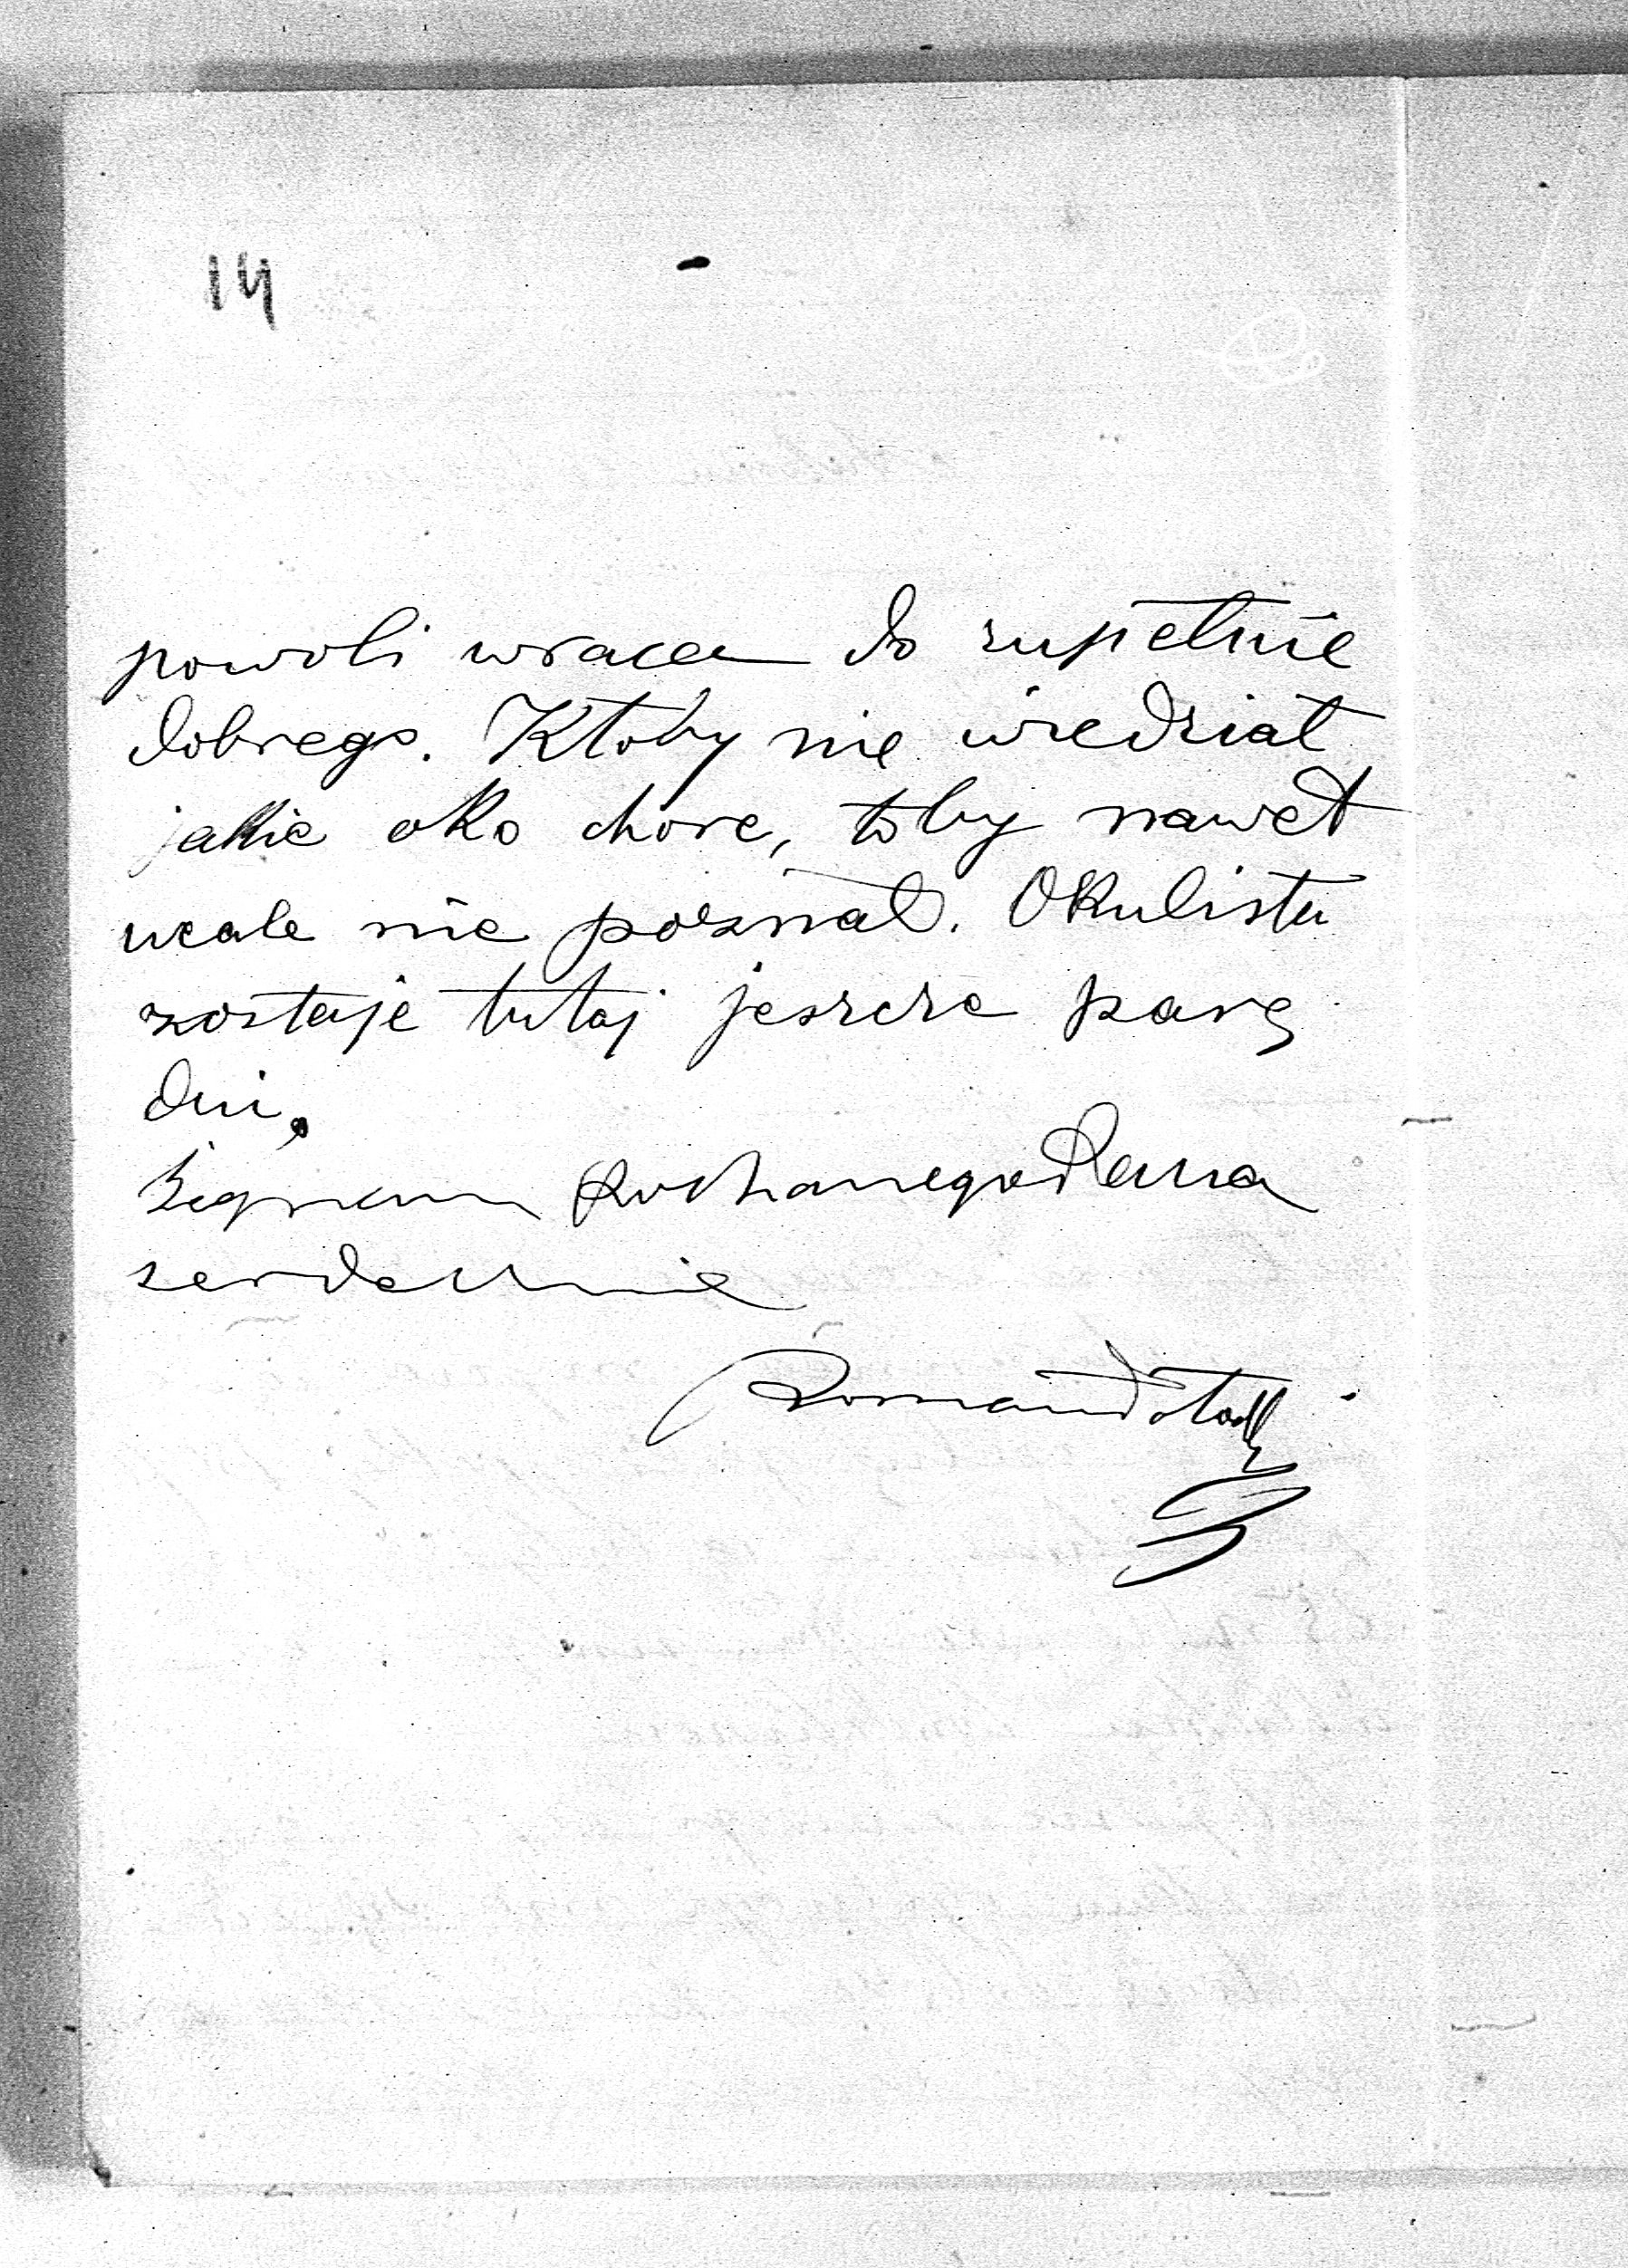 14
powoli wraca do zupełnie
dobrego. Ktoby nie wiedział
jakie oko chore, toby nawet
wcale nie poznał. Okulista
zostaje tutaj jeszcze parę
dni.
Żegnam Kochanego Pana
serdecznie
Roman